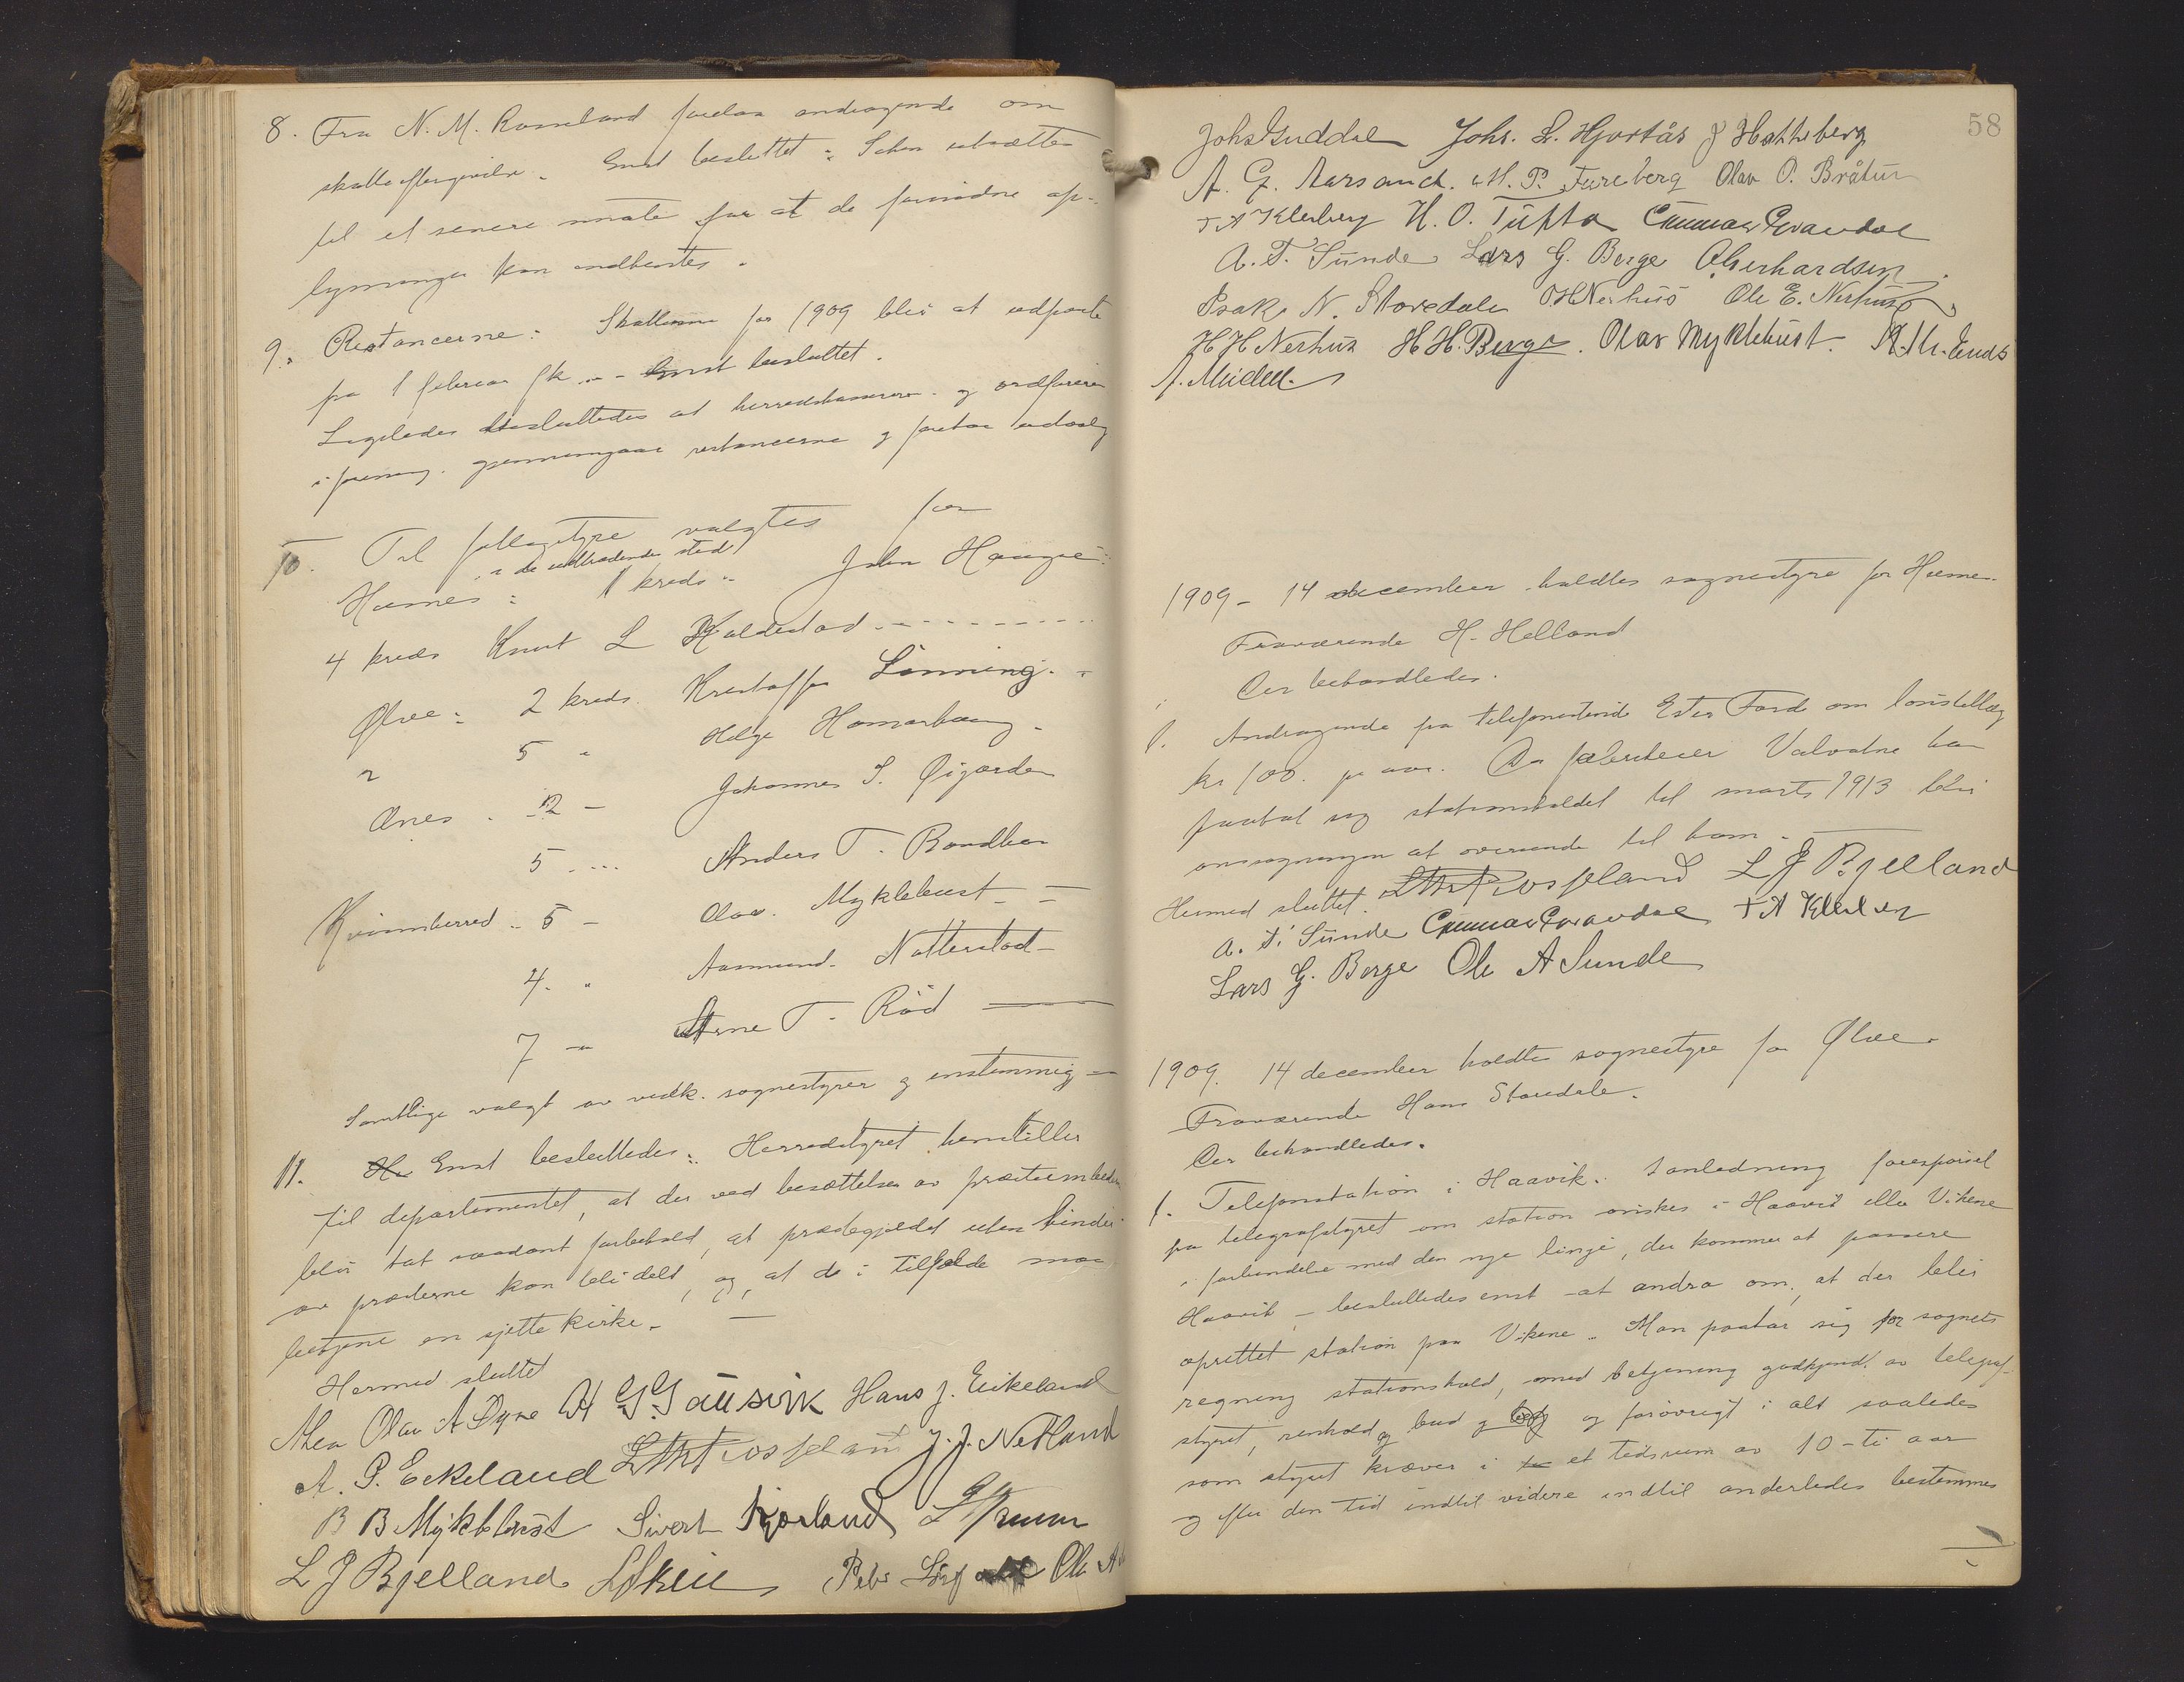 8. Fra N. M. Rosseland forelaa andragende om
skatteeftergivelse. Enst besluttet: Saken utsættes
til et senere møte for at de fornødne op-
lysninger kan indhentes.
9. Restancerne: Skatterne for 1909 blir at udpante
fra 1 februar fk. – Enst besluttet.
Ligeledes besluttedes at herredskasserer og ordfører
i forening gjennemgaar restancerne og foretar udvalg
10. Til fattigstyre valgtes for
i de udtrædende sted
Husnes: 1 kreds John Haugse
4 kreds Knut L Haldestad
Ølve: 2 kreds Kristoffer Lønning
" 5 " Helge Hamarhaug
Ænes 2 – Johannes S. Øigarden
5 Anders T. Bondhus
Kvinnherred 5 – Olav Myklebust
4. " Aamund Natterstad
7 – Arne T. Röd
Samtlige valgt av vedk. sognestyrer og enstemmig
11. Enst besluttedes: Herredstyret henstiller
til departementet, at der ved besættelse av præsteembedet
blir tat saadant forbehold, at prestegjeldet uten hinder
av presterne kan bli delt, og at de i tilfælde maa
betjene en sjette kirke.
Hermed sluttet
Olav A Øyre H G Gausvik Hans J. Eikeland
A. G. Eikeland J. J. Netland
B B Myklebust Sivert Kjærland
L J Bjelland Peder Ole A
58
Johs Guddal Johs. L. Hjortås J Hatteberg
A. G. Aarsand. M. P. Fureberg Olav O. Bråtun
T A Kleberg H. O. Tufta Gunnar Gravdal
A. T. Sunde Lars G. Berge A. Gerhardsen
Isak N. Storedale O H Nerhus Ole E. Nerhus
H H Nerhus H H. Berge. Olav Myklebust.
1909 – 14 december holdtes sognestyre for Husnes.
Fraværende H. Helland
Der behandledes.
1. Andragende fra telefonbestyrerinde Ester Fard om lønstillæg
kr 100. pr aar. Da Valvatne har
paatat sig stationsholdet til marts 1913 blir
ansøgningen at oversende til ham.
Hermed sluttet. L J Bjelland
A. T. Sunde Gunnar Gravdal T A Kleberg
Lars G. Berge Ole A Sunde
1909. 14 december holdtes sognestyre for Ølve.
Fraværende Hans Storedale.
Der behandledes.
1. Telefonstation i Haavik. I anledning forespørsel
fra telegrafstyret om station ønskes i Haavik eller Vikene
i forbindelse med den nye linje, der kommer at passere
Haavik – besluttedes enst at andra om, at der blir
oprettet station paa Vikene. Man paatar sig for sognets
regning stationshold, med betjening godkjendt av telegraf-
styret, renhold og bud og forøvrigt i alt saaledes
som styret kræver i et tidsrum av 10 – ti aar
og efter den tid indtil videre indtil anderledes bestemmes